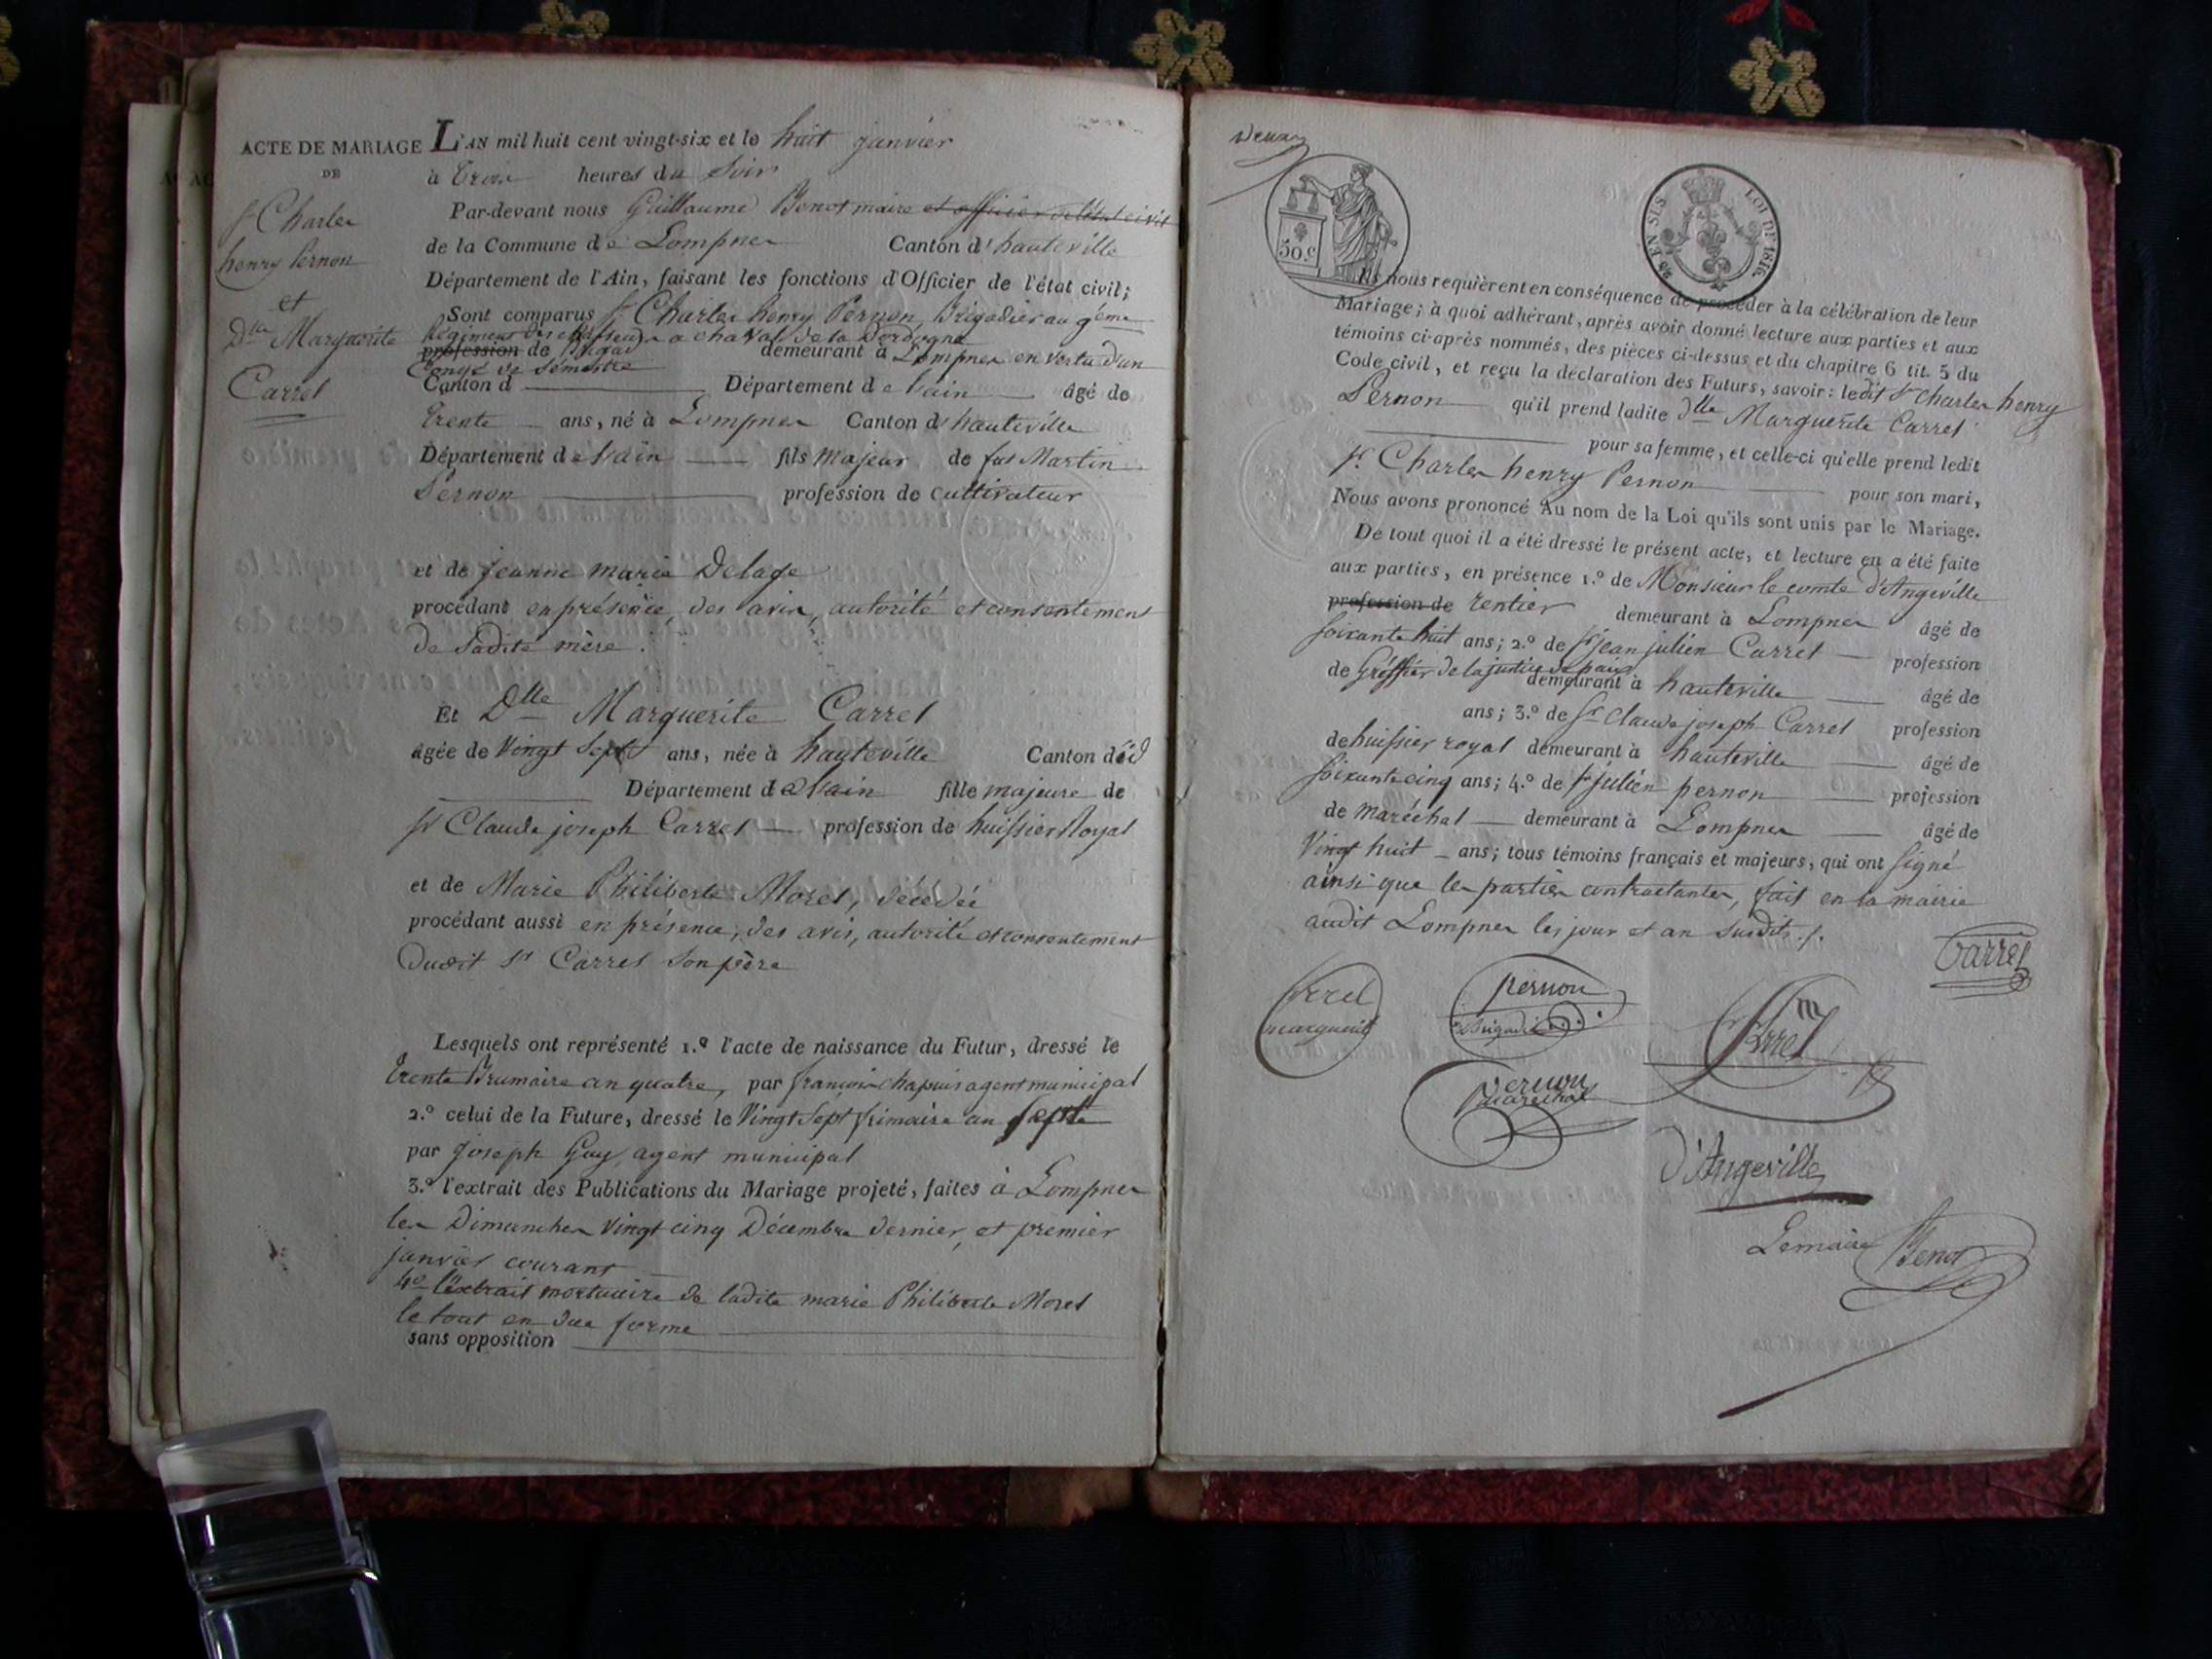 ACTE DE MARIAGE
DE
Sr Charles
henry Pernon
et
Dlle Marguerite
Carrel
L'AN mil huit cent vingt-six et le huit janvier
à trois heures du soir
Par-devant nous Guillaume Benot maire et officier de l'état civil
de la Commune de Lompnes Canton d'hauteville
Département de l'Ain, faisant les fonctions d'Officier de l'état civil;
Sont comparus Sr Charles henry Pernon, Brigadier au 9eme
Régiment des chasseurs a cheval de la Dordogne
profession de Brigad demeurant à Lompnes en vertu d'un
Congé de sémestre
Canton d Département de l'ain âgé de
trente ans, né à Lompnes Canton d'hauteville
Département de l'ain fils majeur de fut Martin
Pernon profession de cultivateur
et de jeanne marie Delage
procédant en présence, des avis, autorité et consentement
de sadite mère.
Et Dlle Marguerite Carrel
âgée de vingt sept ans, née à hauteville Canton did
Département de l'ain fille majeure de
Sr Claude joseph Carrel profession de huissier Royal
et de Marie Philiberte Morel, décédée
procédant aussi en présence, des avis, autorité et consentement
dudit Sr Carrel son père
Lesquels ont représenté 1.º l'acte de naissance du Futur, dressé le
trente Brumaire an quatre, par françois chapuis agent municipal
2.º celui de la Future, dressé le vingt sept frimaire an sept
par joseph Guy, agent municipal
3.º l'extrait des Publications du Mariage projeté, faites à Lompnes
les Dimanches vingt cinq Décembre dernier, et premier
janvier courant
4º l'extrait mortuaire de ladite marie Philiberte Morel
le tout en due forme
sans opposition
Deux
50 c
25 EN SUS LOI DE 1816.
Ils nous requièrent en conséquence de procéder à la célébration de leur
Mariage; à quoi adhérant, après avoir donné lecture aux parties et aux
témoins ci-après nommés, des pièces ci-dessus et du chapitre 6 tit. 5 du
Code civil, et reçu la déclaration des Futurs, savoir: ledit Sr Charles henry
Pernon qu'il prend ladite Dlle Marguerite Carrel
pour sa femme, et celle-ci qu'elle prend ledit
Sr Charles henry Pernon pour son mari,
Nous avons prononcé Au nom de la Loi qu'ils sont unis par le Mariage.
De tout quoi il a été dressé le présent acte, et lecture en a été faite
aux parties, en présence 1.º de Monsieur le comte d'Angeville
profession de rentier demeurant à Lompnes âgé de
soixante huit ans; 2.º de Sr jean julien Carrel profession
de Gréffier de la justice de paix demeurant à hauteville âgé de
ans; 3.º de Sr Claude joseph Carrel profession
de huissier royal demeurant à hauteville âgé de
soixante cinq ans; 4.º de Sr julien pernon profession
de maréchal demeurant à Lompnes âgé de
Vingt huit ans; tous témoins français et majeurs, qui ont signé
ainsi que les parties contractantes, fait en la mairie
audit Lompnes les jour et an susdits.
Carrel
Pernon
brigadier
marguerite
Pernon
marechal
d'Angeville
Le maire Benot